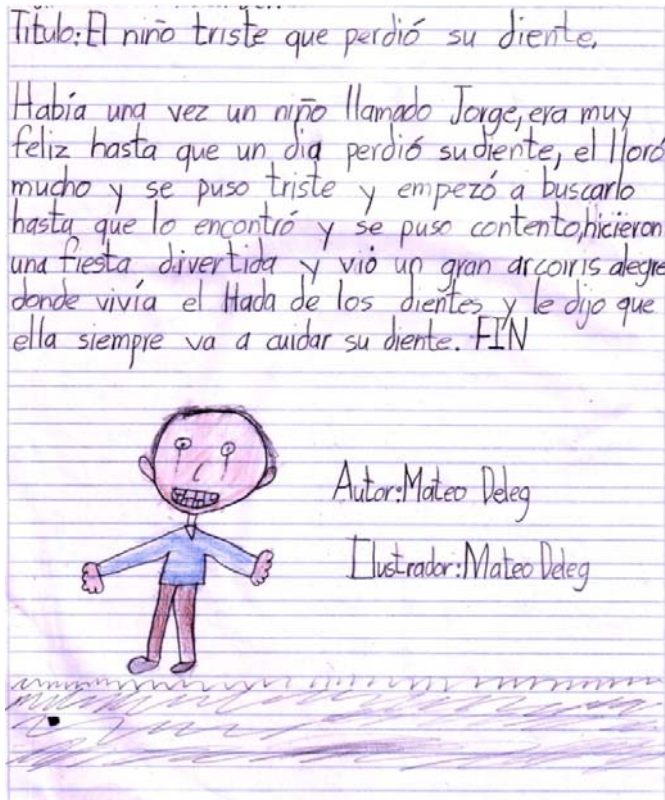 Título: El niño triste que perdió su diente.
Había una vez un niño llamado Jorge, era muy
feliz hasta que un dia perdió su diente, el lloró
mucho y se puso triste y empezó a buscarlo
hasta que lo encontró y se puso contento, hicieron
una fiesta divertida y vió un gran arcoiris alegre
donde vivía el Hada de los dientes y le dijo que
ella siempre va a cuidar su diente. FIN
Autor: Mateo Deleg
Ilustrador: Mateo Deleg